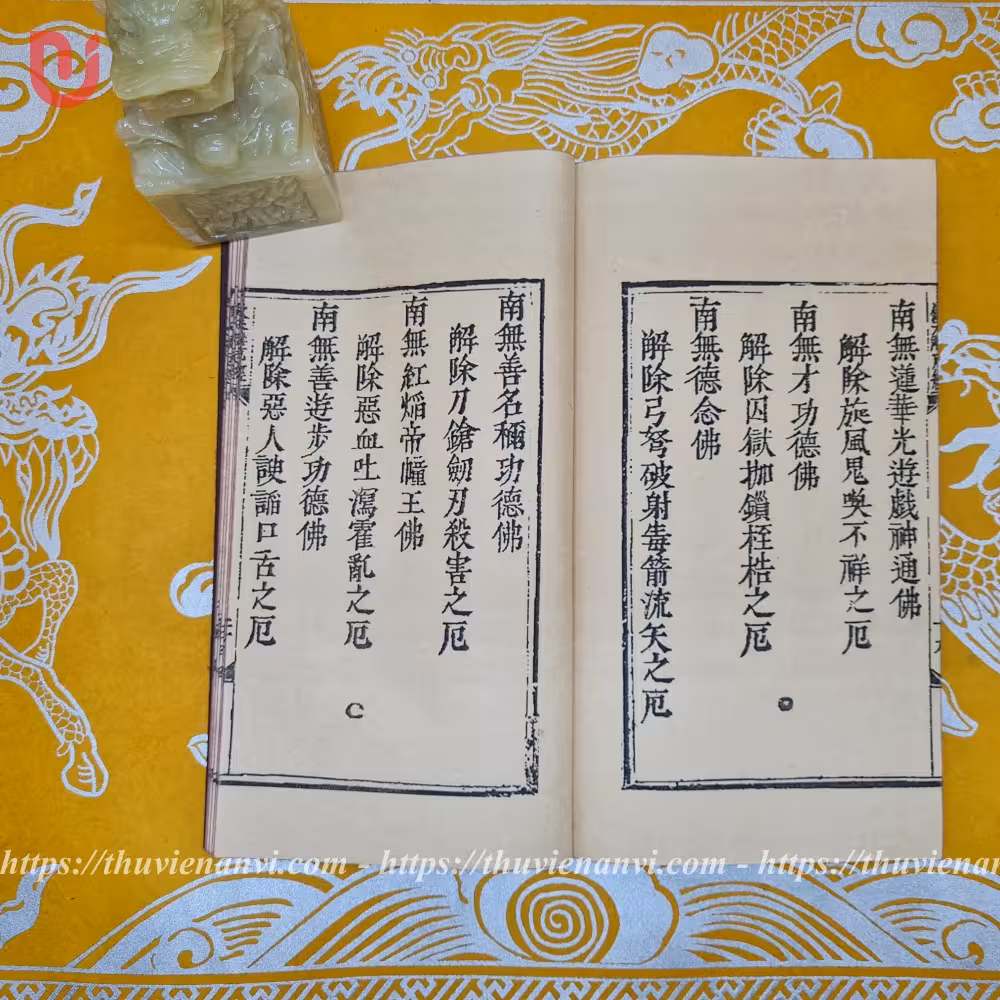 南無蓮華光遊戲神通佛
解除旋風鬼哭不祥之厄
南無才功德佛
解除囚獄枷鎖桎梏之厄
南無德念佛
解除弓弩破射毒箭流矢之厄
南無善名稱功德佛
解除刀鎗劒刃殺害之厄
南無紅熖帝幢王佛
解除惡血吐瀉霍亂之厄
南無善遊步功德佛
解除惡人諛謟口舌之厄
https://thuvienanvi.com - https://thuvienanvi.com - https://thuviena